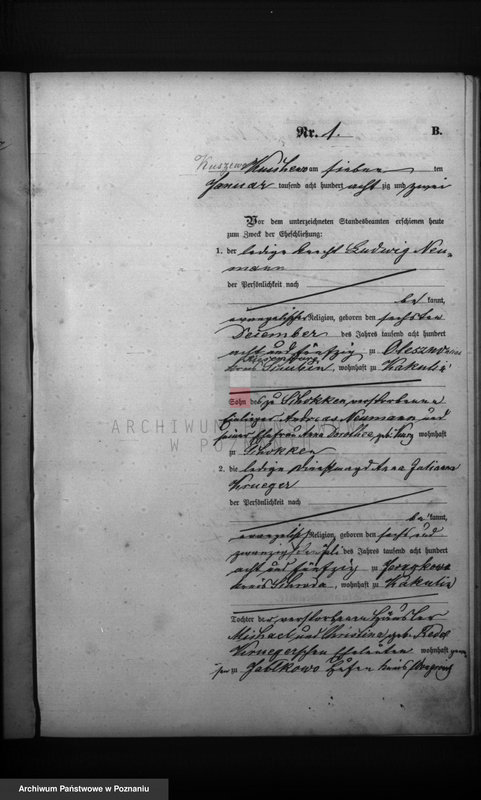 Nr. 1. B.
Kuszewo Kuszewo am sieben ten
Januar tausend acht hundert acht zig und zwei
Vor dem unterzeichneten Standesbeamten erschienen heute
zum Zweck der Eheschließung:
1. der ledige Knecht Ludwig Neu-
mann
der Persönlichkeit nach
be kannt,
evangelischer Religion, geboren den sechsten
Dezember des Jahres tausend acht hundert
acht und fünfzig zu
Kreis Schubin, wohnhaft zu Kakulin
Sohn des zu Schokken verstorbenen
Einlieger Andreas Neumann und
seiner Ehefrau Anna Dorothea geb. wohnhaft
zu Schokken
2. die ledige Dienstmagd Anna Julianna
Krueger
der Persönlichkeit nach
be kannt,
evangelischer Religion, geboren den sechs und
zwanzigsten Juli des Jahres tausend acht hundert
acht und fünfzig zu
Kreis Schroda, wohnhaft zu Kakulin
Tochter der verstorbenen Häusler
Michael und Christina geb. Redel
Kruegerschen Eheleuten wohnhaft gewe-
sen zu Jablkowo Kreis
ARCHIWUM
W POZNANIU
Archiwum Państwowe w Poznaniu